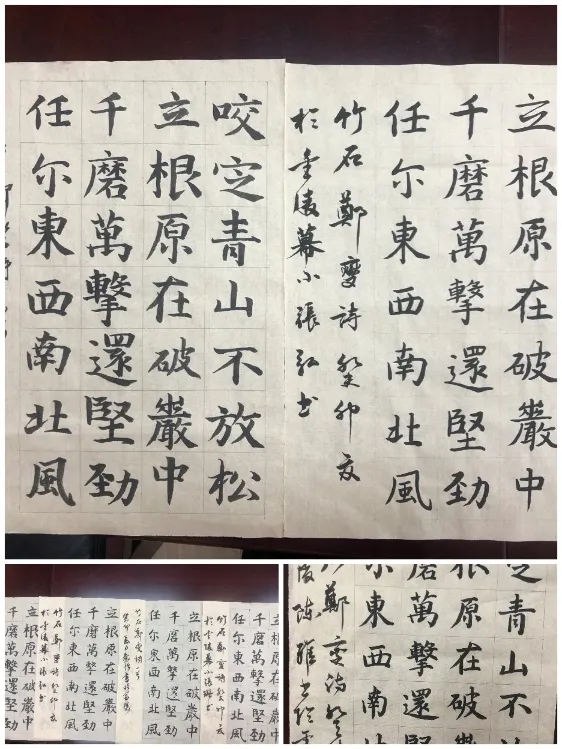 立根原在破巖中
千磨萬擊還堅勁
任尔東西南北風
竹石鄭燮詩癸卯夏
於金陵幕小張弘书
咬定青山不放松
立根原在破巖中
千磨萬擊還堅勁
任尔東西南北風
立根原在破巖中
千磨萬擊還堅勁
任尔東西南北風
竹石鄭燮詩癸卯夏
於金陵幕小張
立根原在破巖中
千磨萬擊還堅勁
任尔東西南北風
竹石鄭燮詩
立根原在破巖中
千磨萬擊還堅勁
任尔東西南北風
竹石鄭燮詩癸卯夏
於金陵幕小張弘书
立根原在破巖中
千磨萬擊還堅勁
定青山不
根原在破
磨萬擊還
尔東西南
鄭燮詩癸
陵陳